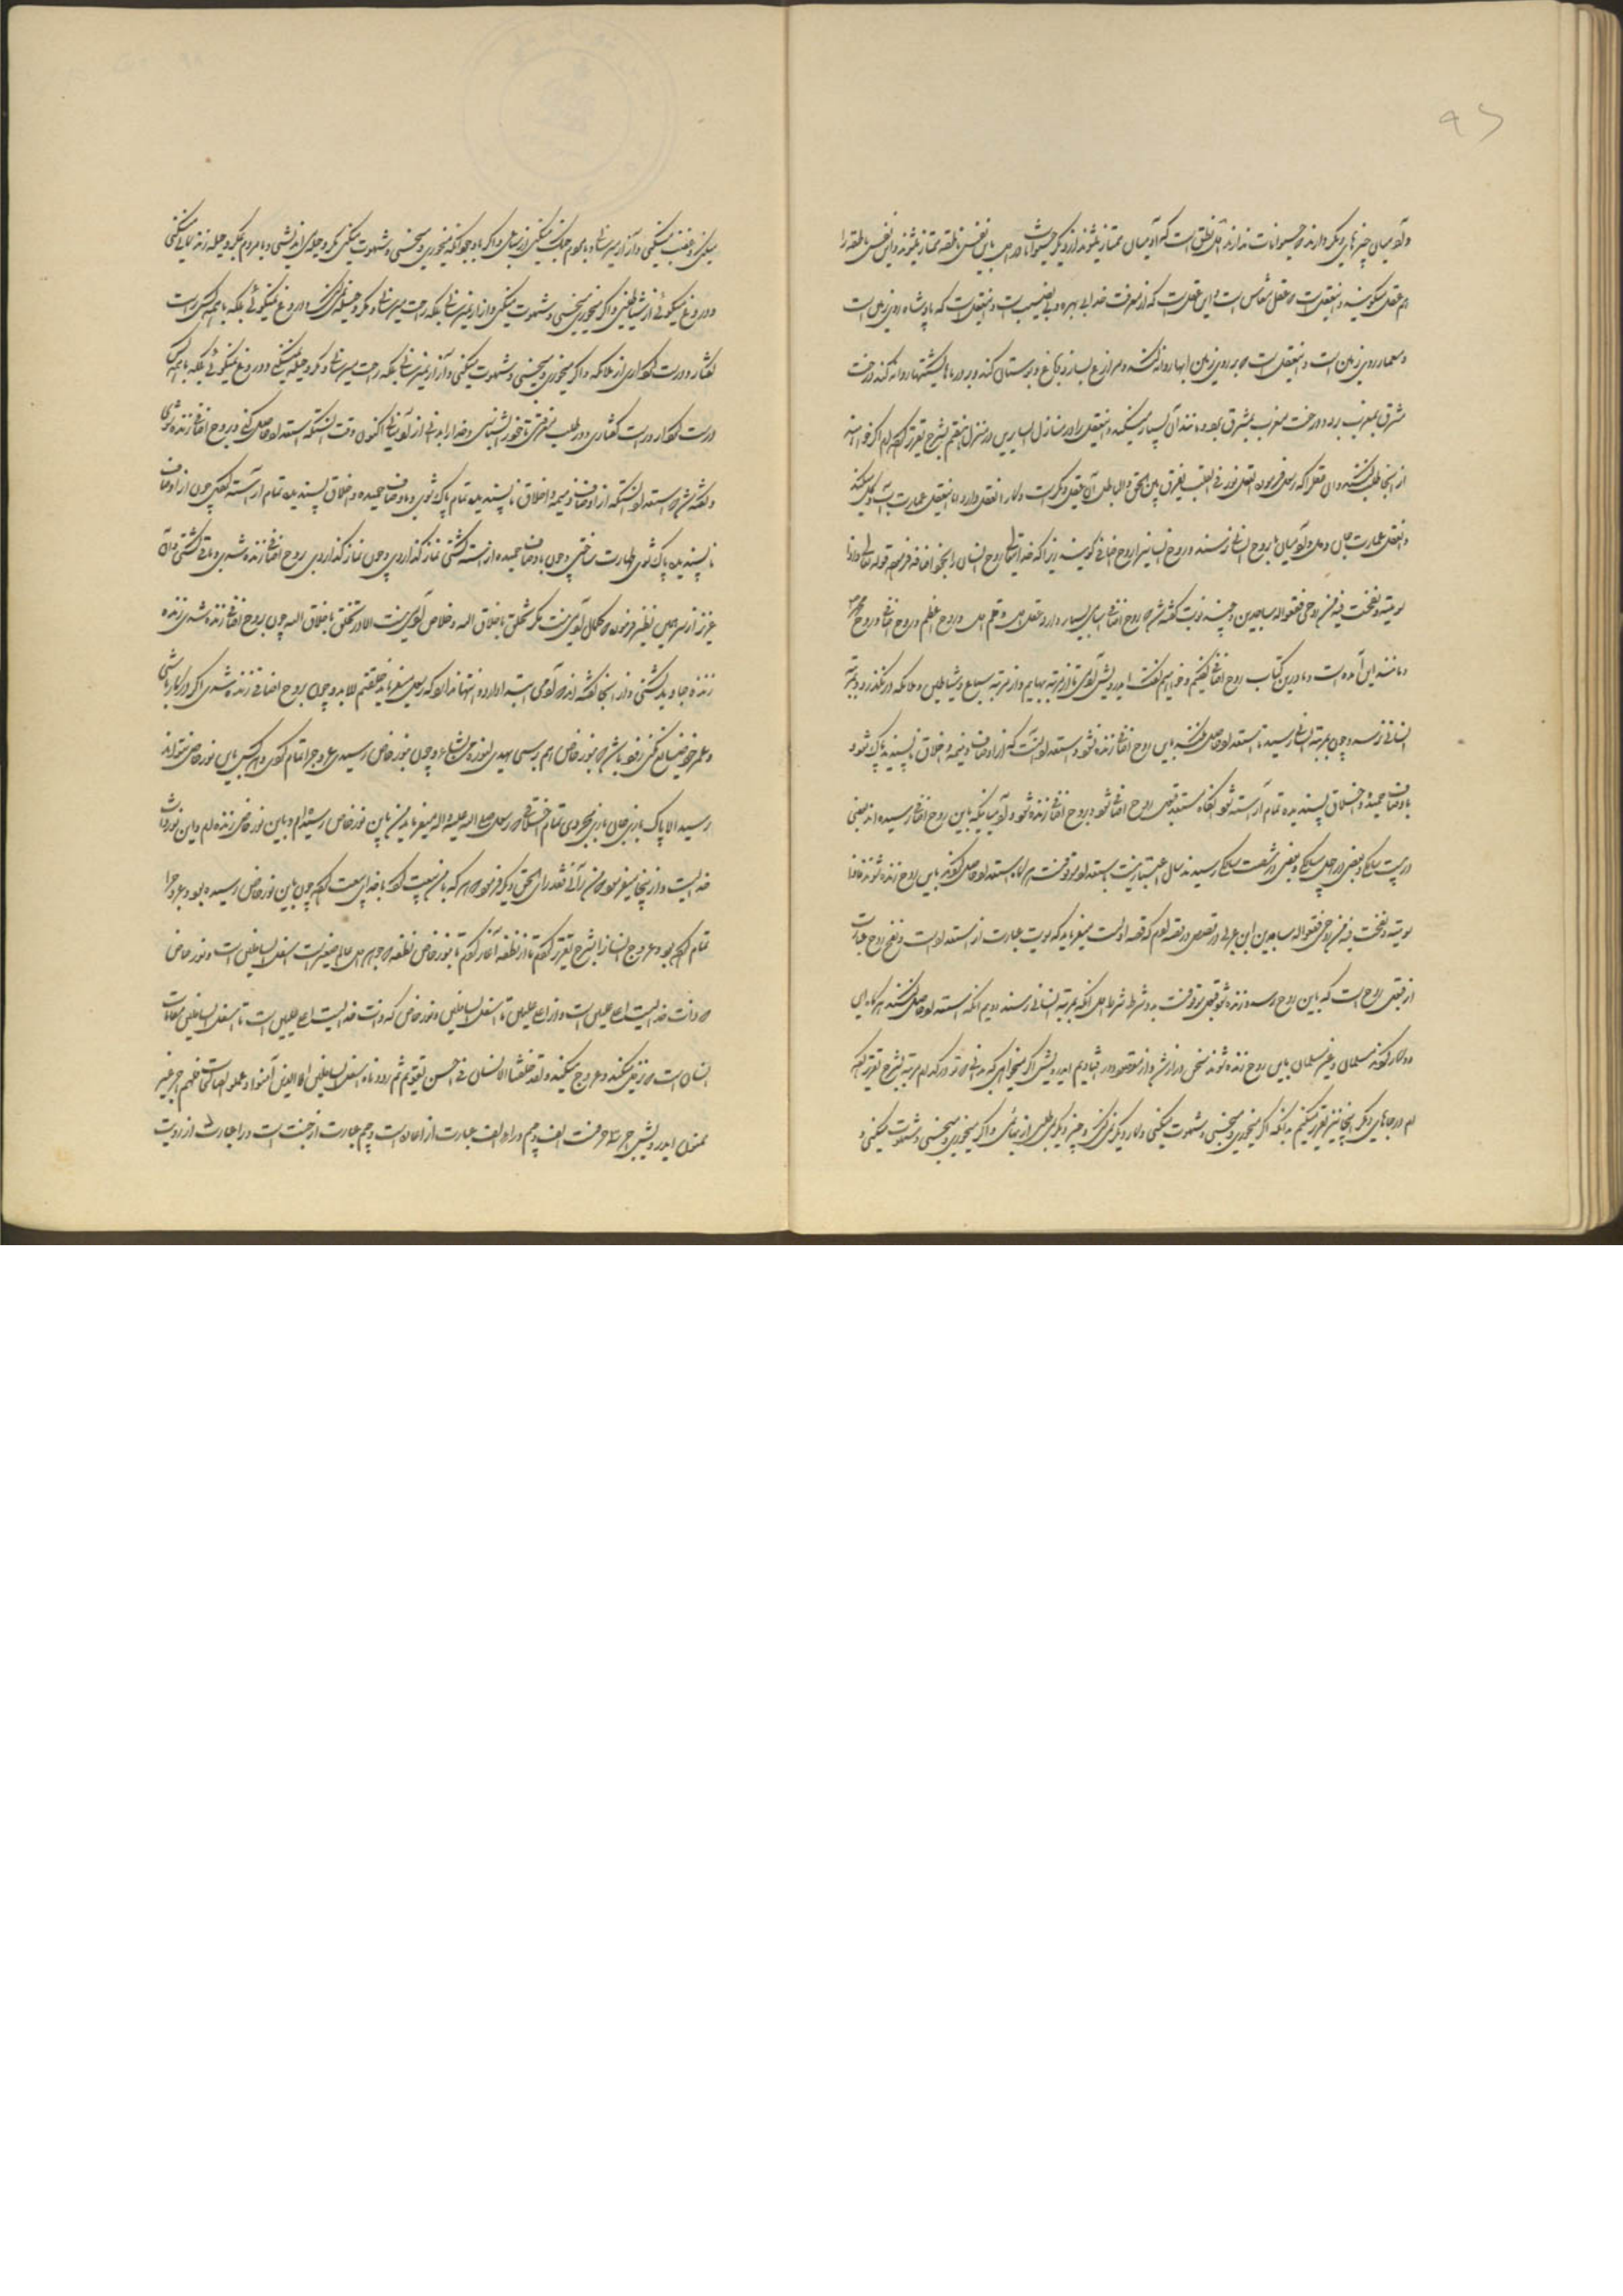 و آدمیان چیزهای دیگر دارند که حیوانات ندارند آن نطق است که آدمیان ممتاز میشوند از دیگر حیوانات و آدمیان باین نفس ناطقه ممتاز میشوند و این نفس ناطقه را
هم عقل میگویند و این عقلیست که عقل معاش است و این عقلست که از معرفت خدای بی بهره و بی نصیب است و این عقلست که پادشاه روی زمین است
و معمار روی زمین است و این عقل است که بر روی زمین آبها روانه کند و مزارع بسازد و باغ و بوستان کند و بر دریاها کشتیها روانه کند و درخت
مشرق بمغرب برد و درخت مغرب بمشرق آورد و مانند این بسیار میکند و این عقل را در منازل السایرین در منزل هفتم بشرح تقریر کرده ام اگر خواهند
از آنجا طلب کنند و آن عقل که رسول فرموده العقل نور فی القلب یفرق بین الحق و الباطل آن عقل دیگر است و کار آن عقل دارد اما این عقل عمارت آب و گل میکند
و آن عقل عمارت جان و دل و آدمیان تا بروح انسانی نرسند و روح انسانی را روح اضافی گویند زیرا که خدای تعالی روح انسان را بخود اضافه فرمود قوله تعالی فاذا
سویته و نفخت فیه من روحی فقعوا له ساجدین و چند نوبت گفته شد که روح اضافی اسامی بسیار دارد عقل اول و قلم اول و روح اعظم و روح اضافی و روح محمدی
و مانند این آمده است و ما درین کتاب روح اضافی گفتیم و خواهیم گفت ای درویش آدمی تا از مرتبه بهایم و از مرتبه سباع و شیاطین و ملائکه در نگذرد و بمرتبه
انسانی نرسد و چون بمرتبه انسانی رسید تا استعداد حاصل نکند باین روح اضافی زنده نشود و استعداد آنست که از اوصاف ذمیمه و اخلاق ناپسندیده پاک شود
باوصاف حمیده و اخلاق پسندیده تمام آراسته شود آنگاه مستعد قبول روح اضافی شود و بروح اضافی زنده شود و آدمیانیکه باین روح اضافی رسیده اند بعضی
در بیست سالگی و بعضی در چهل سالگی و بعضی در شصت سالگی رسیدند سال اعتبار نیست باستعداد موقوفست هرگاه استعداد حاصل کنند باین روح زنده شوند فاذا
سویته و نفخت فیه من روحی فقعوا له ساجدین ابن عربی در فصوص در قصه آدم که قصه اول است میفرماید که سویت عبارت از استعداد است و نفخ روح عبارت
از قبول روح است که باین روح رسد و زنده شود قبول موقوفست بدو شرط شرط اول آنکه بمرتبه انسانی رسند دویم آنکه استعداد حاصل کنند هرگاه این
دو کار کنند مسلمان و غیر مسلمان باین روح زنده شوند سخن دراز شد و از مقصود دور افتادیم ای درویش اگر میخواهی که بدانی که تو در کدام مرتبه بشرح تقریر کرده
ام در جاهای دیگر اینجا نیز تقریر میکنیم بدانکه اگر میخوری و میخسبی و شهوت میکنی و کار دیگر نمیکنی و چیز دیگر نمیطلبی از بهایمی و اگر میخوری و میخسبی و شهوت میکنی و
میکنی و غضب میکنی و آزار میرسانی و با مردم جنگ میکنی از سباعی و اگر با وجود آنکه میخوری و میخسبی و شهوت میکنی مکر و حیله می اندیشی و با مردم بمکر و حیله زندگانی میکنی
و دروغ میگوئی از شیاطینی و اگر میخوری و میخسبی و شهوت میکنی و آزار نمیرسانی بلکه راحت میرسانی و مکر و حیله نمیکنی و دروغ نمیگوئی بلکه با همه کس راست
گفتار و درست کرداری از ملائکه و اگر میخوری و میخسبی و شهوت میکنی و آزار نمیرسانی بلکه راحت میرسانی و مکر و حیله نمیکنی و دروغ نمیگوئی بلکه با همه کس
درست کردار و راست گفتاری و در طلب معرفتی تا خود را بشناسی و خدا را بدانی از آدمیانی اکنون وقت آنستکه استعداد حاصل کنی و بروح اضافی زنده شوی
و گفته شد که استعداد آنستکه از اوصاف ذمیمه و اخلاق ناپسندیده تمام پاک شوی و باوصاف حمیده و اخلاق پسندیده تمام آراسته گردی چون از اوصاف
ناپسندیده پاک شوی طهارت ساختی و چون باوصاف حمیده آراسته گشتی نماز گذاردی و چون نماز گذاردی بروح اضافی زنده شدی و باقی گشتی و آن
عزیز از سر همین نظر فرموده که کمال آدمی نیست مگر تخلق باخلاق الله و خلاص آدمی نیست الا در تخلق باخلاق الله چون بروح اضافی زنده شدی زنده
زنده جاوید گشتی و از اینجا گفته اند که آدمی ابتدا دارد و انتها ندارد که رسول میفرماید خلقتم للابد و چون بروح اضافی زنده شدی اگر در کار باشی
و عمر خود ضایع نکنی زود باشد که بنور خاص هم برسی یهدی الله لنوره من یشاء و چون بنور خاص رسیدی عروج را تمام کردی و هر کس باین نور خاص نتواند
رسید الا پاک بازی جان بازی مجردی تمام اخلاقی که رسول صلی الله علیه و اله میفرماید من باین نور خاص رسیده ام و باین نور خاص زنده ام و این نور ذات
خدایست و از اینجا میفرمود من رآنی فقد رای الحق دیگر فرمود که هر که با من بیعت کرد با خدای بیعت کرد چون باین نور خاص رسیده بود و عروج را
تمام کرده بود عروج انسان را بشرح تقریر کردم تا از نطفه آغاز کردم تا بنور خاص نطفه که جوهر اول عالم صغیر است اسفل السافلین است و نور خاص
که ذات خدایست اعلی علیین است و از اعلی علیین تا اسفل السافلین و نور خاص که ذات خدایست اعلی علیین است تا اسفل السافلین مقامات
انسان است که نزول میکند و عروج میکند و لقد خلقنا الانسان فی احسن تقویم ثم رددناه اسفل السافلین الا الذین آمنوا و عملوا الصالحات فلهم اجر غیر
ممنون ای درویش اجر سه حرفست الف و جیم و را و الف عبارت از اعاده است و جیم عبارت از جنت است و را عبارت از رویت